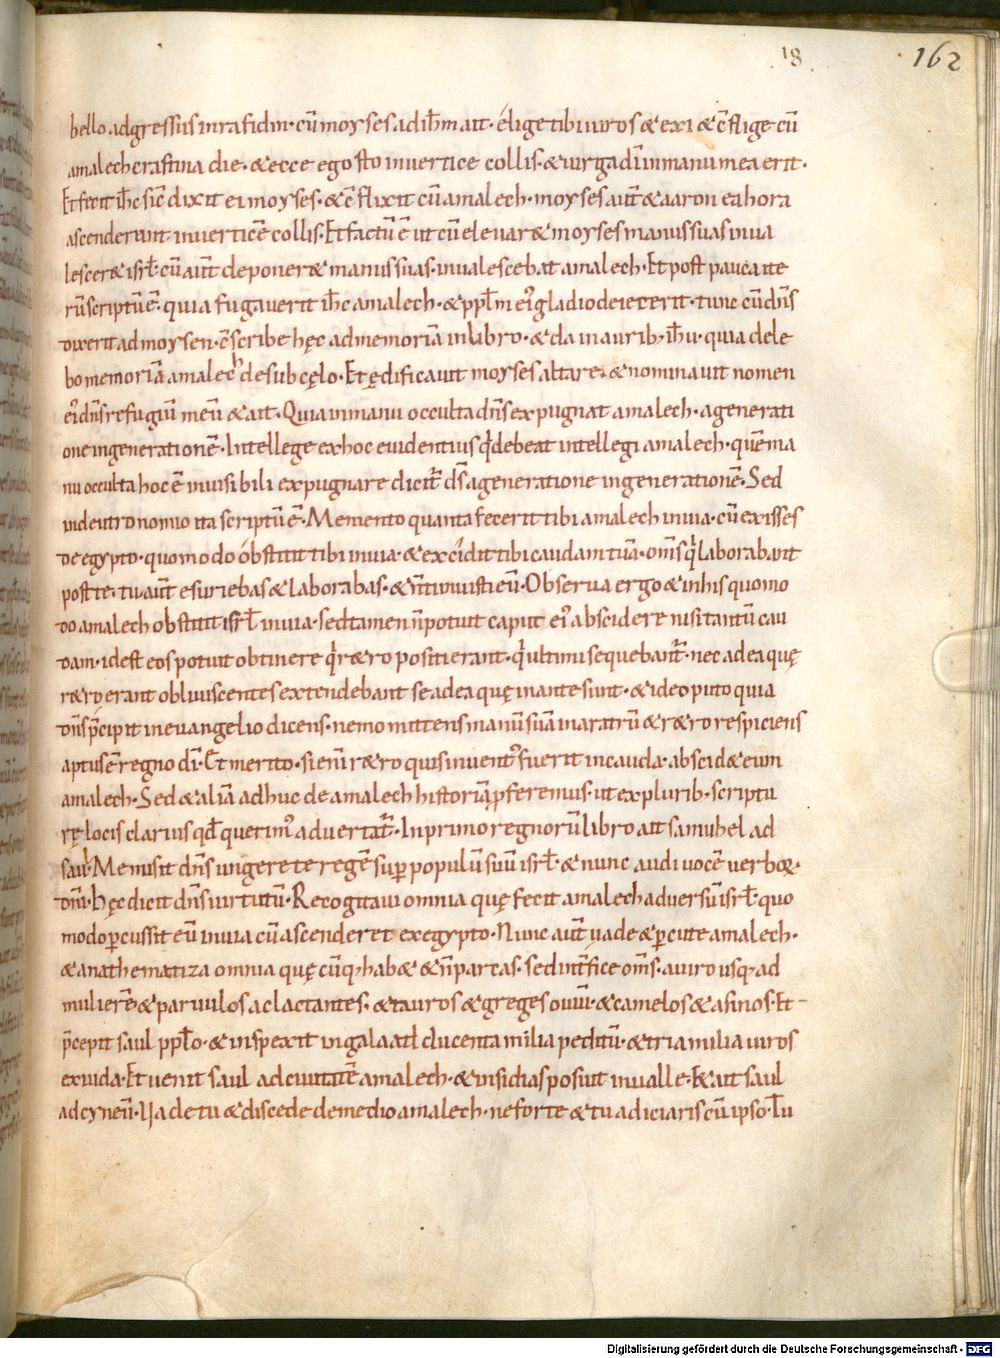 18
162
bello adgressus in rafidin · cū moyses ad ihm̄ ait · elige tibi viros & exi & cōflige cū
amalech crastina die · & ecce ego sto in vertice collis · & virga dī in manu mea erit ·
Et fecit ihc̄ sic̄ dixit ei moyses · & cōflixit cū amalech · moyses aūt & aaron ea hora
ascenderunt in verticē collis · Et factū ē ut cū elevar& moyses manus suas inva
lescer& isrl̄ · cū aūt deponer& manus suas · invalescebat amalech · Et post pauca ite
rū scriptū ē · quia fugaverit ihc̄ amalech · & ppl̄m ei' gladio deiecerit · tunc cū dn̄s
dixerit ad moysen · cōscribe hęc ad memoriā in libro · & da in aurib; ihū · quia dele
bo memoriā amalech de sub cęlo · Et ędificavit moyses altare · & nominavit nomen
ei' dn̄s refugiū meū & ait · Quia in manu occulta dn̄s expugnat amalech · a generati
one in generationē · Intellege ex hoc evidentius qd̄ debeat intellegi amalech · quē ma
nu occulta hoc ē invisibili expugnare dicit̄ ds̄ a generatione in generationē · Sed
in deutronomio ita scriptū ē · Memento quanta fecerit tibi amalech in via · cū exisses
de egypto · quomodo obstitit tibi in via · & excidit tibi caudam tuā · oms̄ qi laborabant
post te · tu aūt esuriebas & laborabas · & n̄ timuisti eū · Observa ergo & in his quomo
do amalech obstitit isrl̄ in via · sed tamen n̄ potuit caput ei' abscidere nisi tantū cau
dam · id est eos potuit obtinere qi r&ro positi erant · qi ultimi sequebant̄ · nec ad ea quę
r&ro erant obliviscentes extendebant se ad ea quę in ante sunt · & ideo puto quia
dn̄s p̄cipit in evangelio dicens · nemo mittens manū suā in aratrū & r&ro respiciens
aptus ē regno dī · Et merito · si enī r&ro quis invent' fuerit in cauda · abscid& eum
amalech · Sed & aliā adhuc de amalech historiā p̄feremus · ut ex plurib · scriptu
rę locis clarius qd̄ querim' advertat̄ · In primo regnorū libro ait samuhel ad
saul · Me misit dn̄s ungere te regē sup̄ populū suum isrl̄ · & nunc audi vocē verboꝝ ·
dn̄i · hęc dicit dn̄s virtutū · Recogitavi omnia quę fecit amalech adversū isrl̄ · quo
modo p̄cussit eū in via cū ascenderet ex egypto · Nunc aūt vade & p̄cute amalech ·
& anathematiza omnia quę cūq; hab& & n̄ parcas · sed int̄fice oms̄ · a viro usq; ad
mulierē & parvulos ac lactantes · & tauros & greges oviū · & camelos & asinos · Et
p̄cepit saul ppl̄o · & inspexit in galaath ducenta milia peditū · & tria milia viros
ex iuda · Et venit saul ad civitatē amalech · & insidias posuit in valle · & ait saul
ad cyneū · Vade tu & discede de medio amalech · ne forte & tu adiciaris cū ipso · Tu
Digitalisierung gefördert durch die Deutsche Forschungsgemeinschaft - DFG